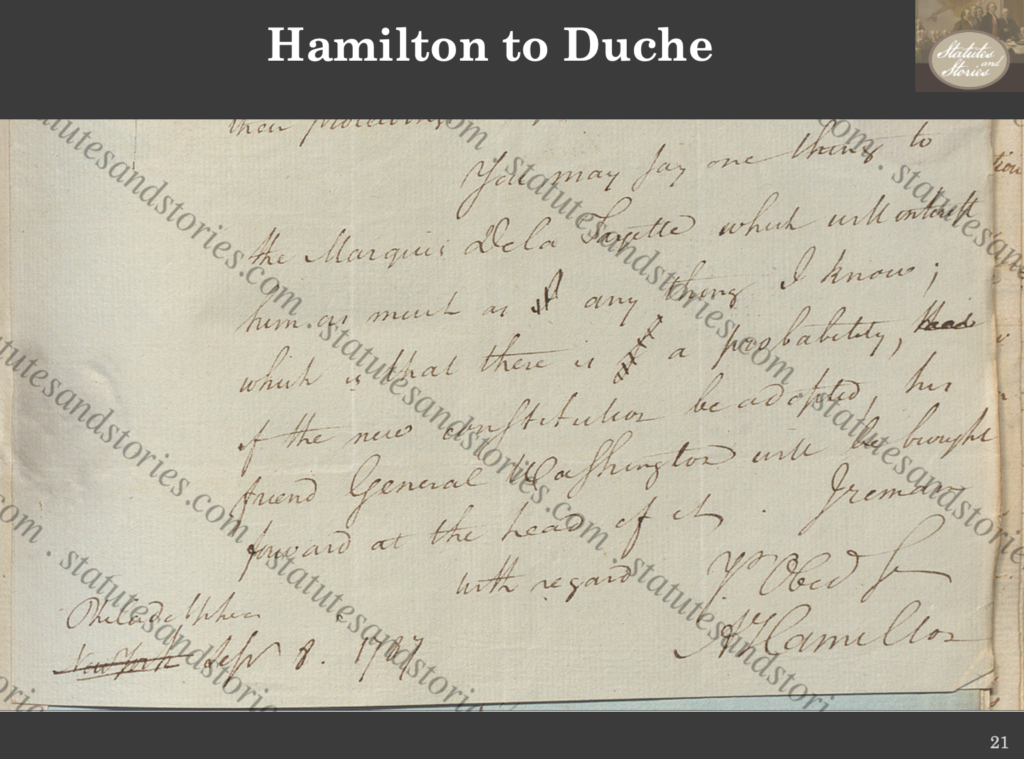 Hamilton to Duche
Statutes
and
Stories
their proceedings
You may say one thing to
the Marquis De la Fayette which will interest
him as much as any thing I know;
which is that there is a probability,
if the new constitution be adopted, his
friend General Washington will be brought
forward at the head of it. I remain
with regard Yr Obed Ser
A Hamilton
Philadelphia
New York Sepr 8. 1787
tion
statutesandstories.com . statutesandstories.com . statutesandstories.com
21